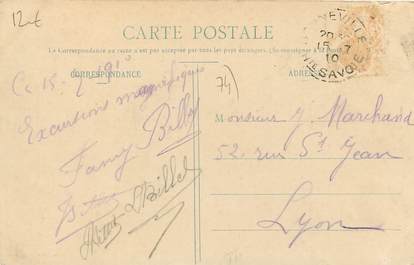 12€
CARTE POSTALE
La Correspondance au recto n'est pas acceptée par tous les pays étrangers. (Se renseigner à la Poste)
CORRESPONDANCE
ADRESSE
20
15 7
10
SAVOIE
74
Ce 15-7 1910
Excursions magnifiques
Fany Billy
Billet
Monsieur J Marchand
52, rue St Jean
Lyon